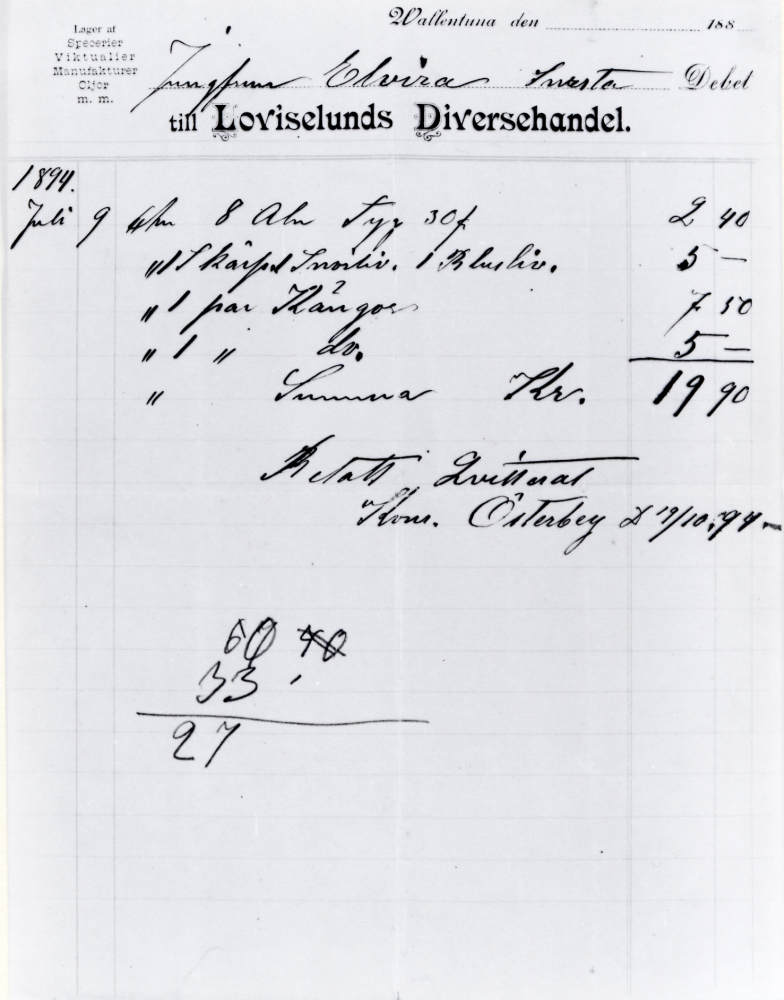 Wallentuna den 188
Lager af
Specerier
Viktualier
Manufakturer
Oljor
m. m.
Jungfrun Elvira Debet
till Loviselunds Diversehandel.
1894.
Juli 9 8 Aln Tyg 30 f 2 40
" 1 Skärp 1 Snörliv. 1 Blusliv. 5 —
" 1 par Kängor 7 50
" 1 " do. 5 —
" Summa Kr. 19 90
Betalt Qvitteras
Kom. Österbey D 19/10 94
60 40
33
27